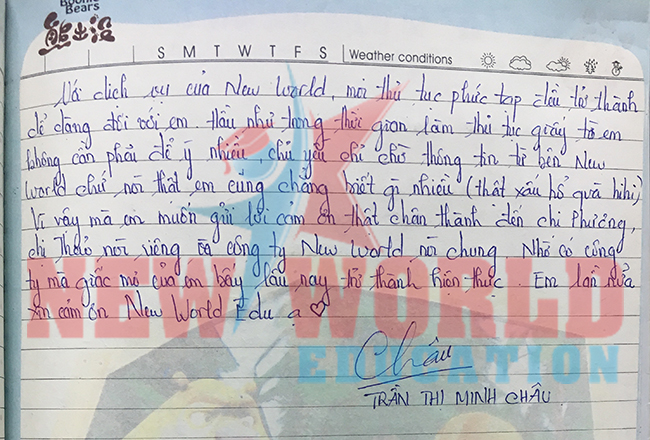 Boonie
Bears
熊出没
S M T W T F S Weather conditions
Với dịch vụ của New World, mọi thủ tục phức tạp đều trở thành
dễ dàng đối với em. Hầu như trong thời gian làm thủ tục giấy tờ em
không cần phải để ý nhiều, chủ yếu chỉ chờ thông tin từ bên New
World chứ nói thật em cũng chẳng biết gì nhiều (thật xấu hổ quá hihi)
Vì vậy mà em muốn gửi lời cảm ơn thật chân thành đến chị Phương,
chị Thảo nói riêng và công ty New World nói chung. Nhờ có công
ty mà giấc mơ của em bấy lâu nay trở thành hiện thực. Em lần nữa
xin cảm ơn New World Edu ạ ♡
NEW WORLD
EDUCATION
Châu
TRẦN THỊ MINH CHÂU